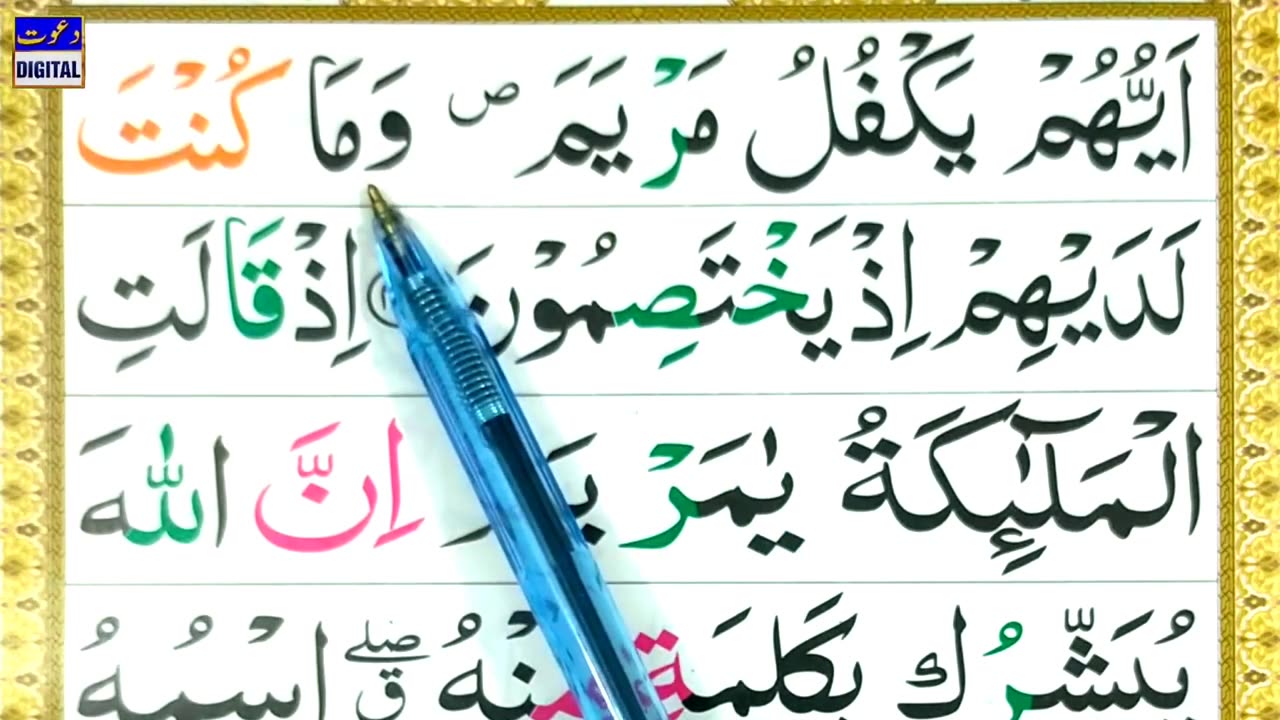 دعوت
DIGITAL
اَیُّهُمْ یَكْفُلُ مَرْیَمَ ۪ وَمَا كُنْتَ
لَدَیْهِمْ اِذْ یَخْتَصِمُوْنَ اِذْ قَالَتِ
الْمَلٰٓىِٕكَةُ یٰمَرْیَمُ اِنَّ اللّٰهَ
یُبَشِّرُكِ بِكَلِمَةٍ مِّنْهُ ۖۗ اسْمُهُ